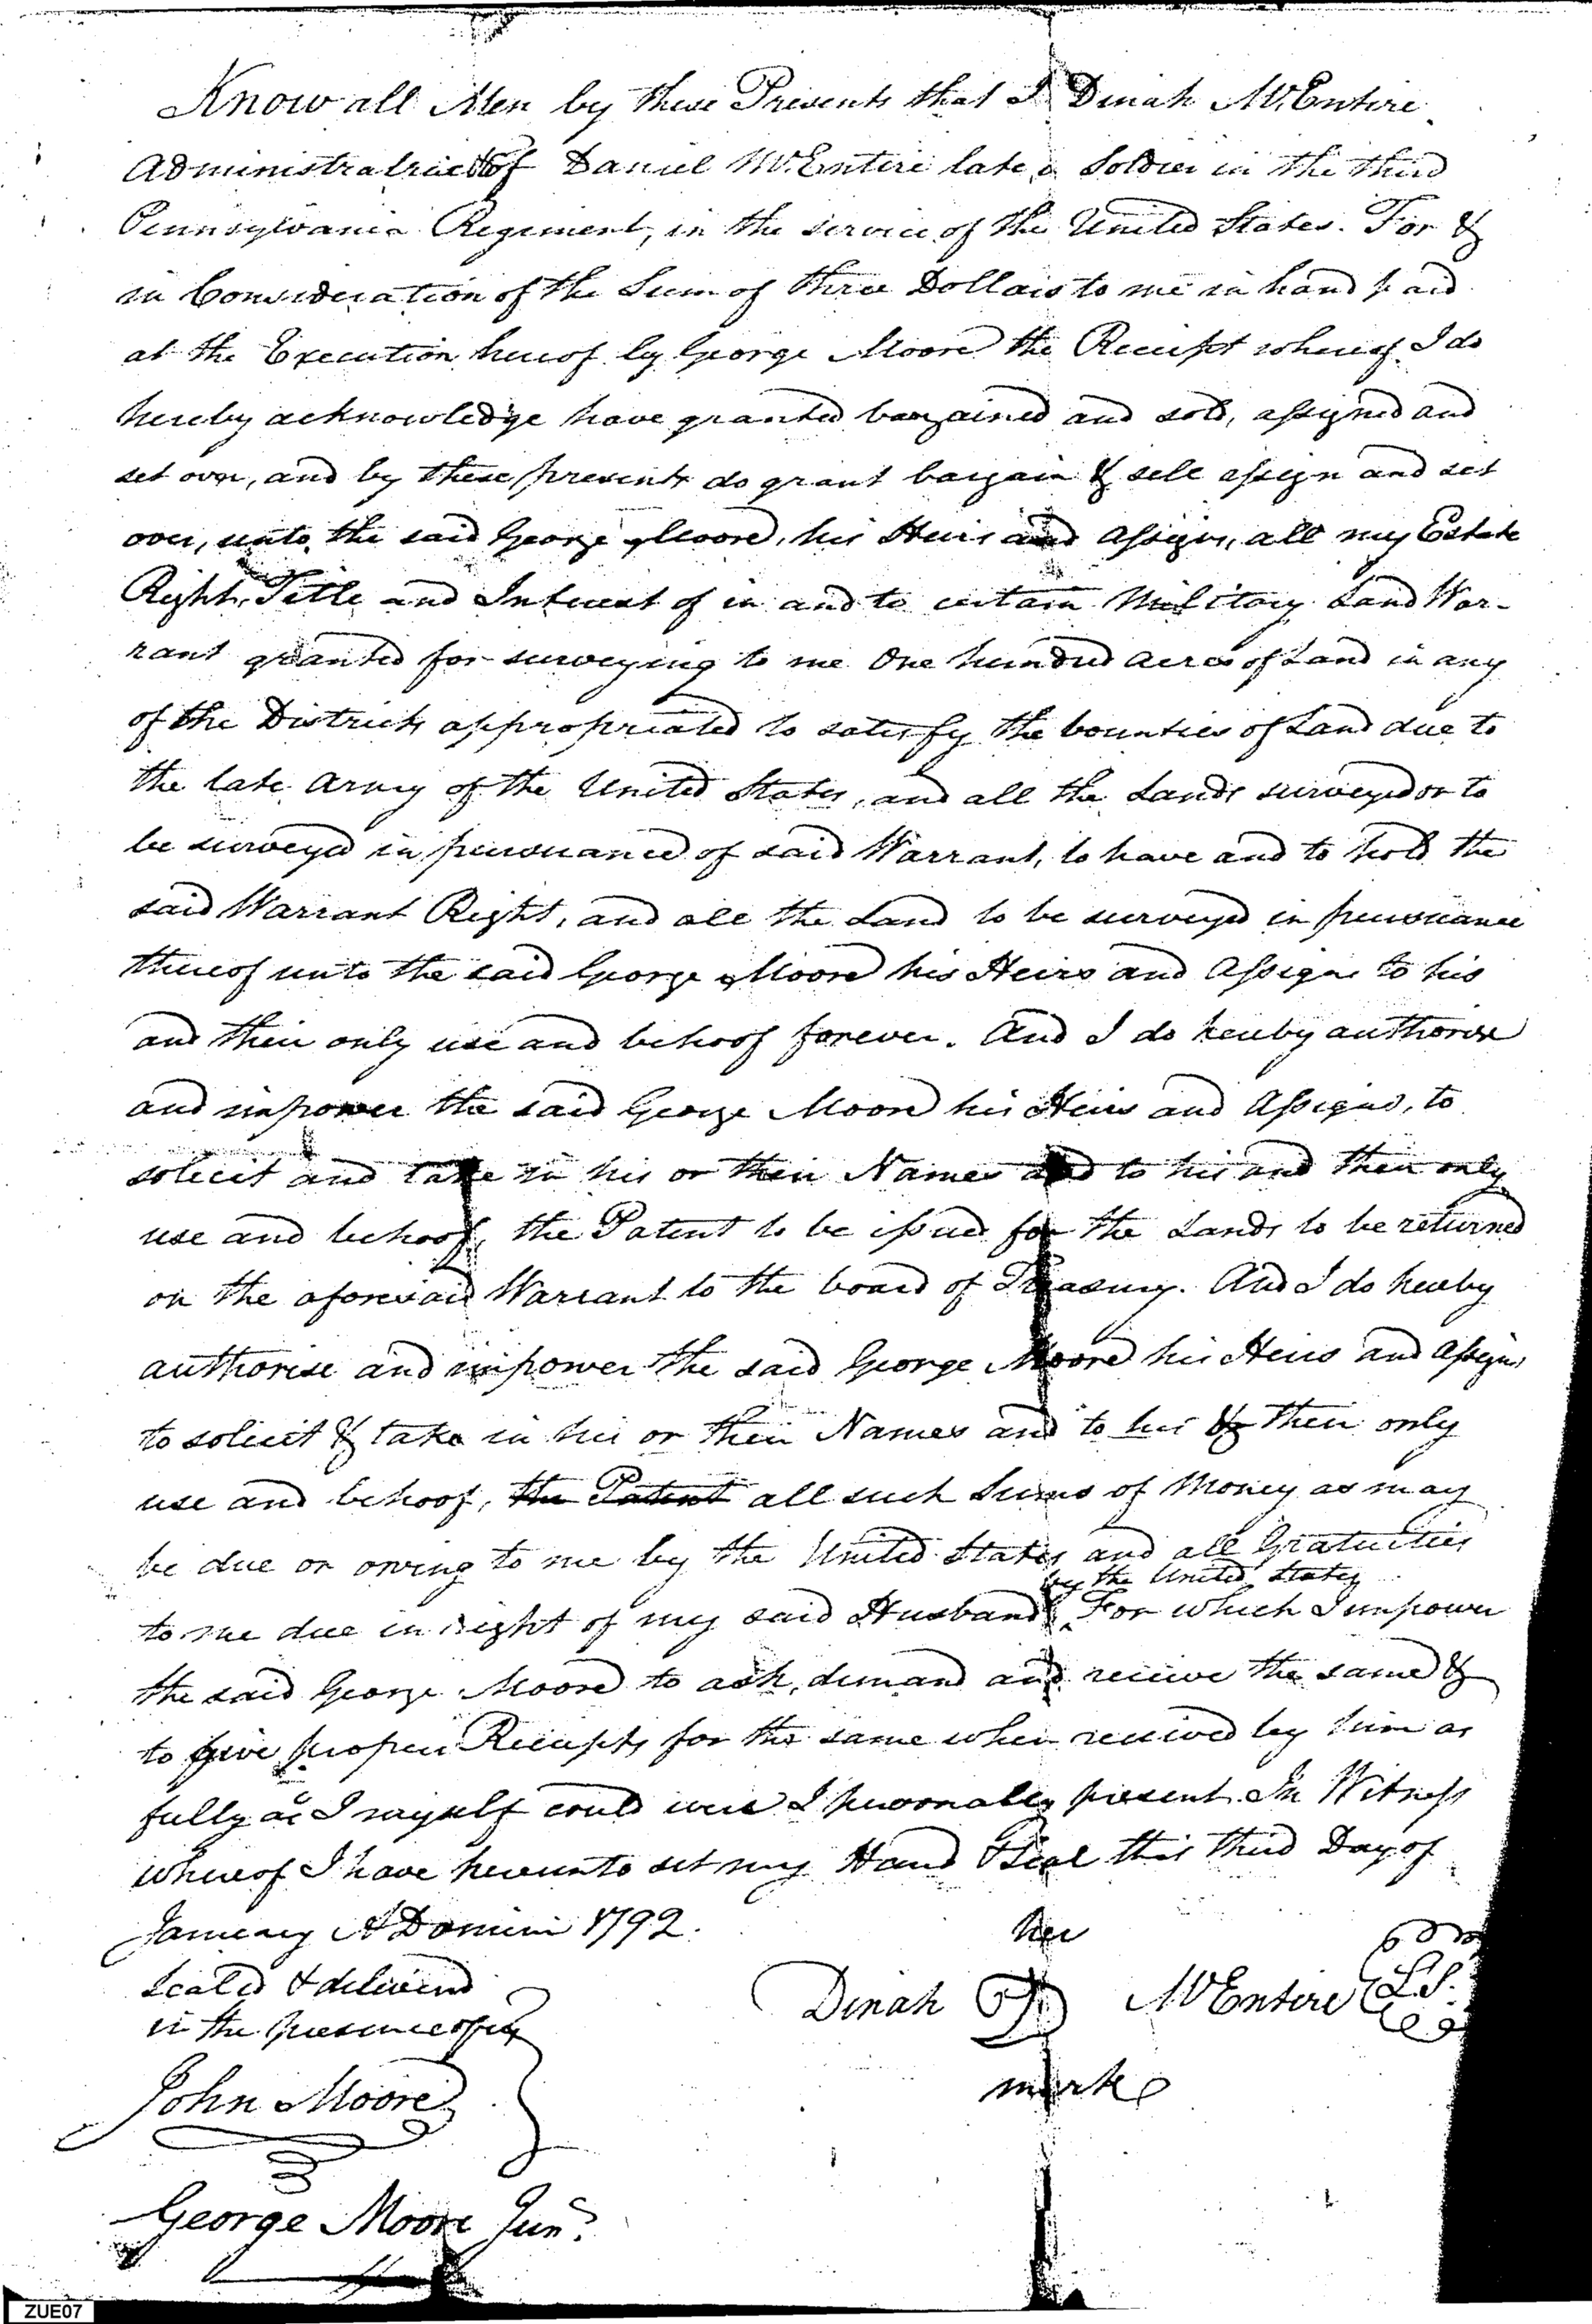 Know all Men by these Presents that I Dinah McEntire
Administratrix of Daniel McEntire late a Soldier in the third
Pennsylvania Regiment, in the service of the United States. For &
in Consideration of the Sum of three Dollars to me in hand paid
at the Execution hereof by George Moore the Receipt whereof I do
hereby acknowledge have granted bargained and sold, assigned and
set over, and by these presents do grant bargain & sell assign and set
over, unto the said George Moore, his Heirs and Assigns, all my Estate
Right, Title and Interest of in and to certain Military Land War-
rant granted for surveying to me One hundred acres of Land in any
of the Districts appropriated to satisfy the bounties of Land due to
the late Army of the United States, and all the Lands surveyed or to
be surveyed in pursuance of said Warrant, to have and to hold the
said Warrant Right, and all the Land to be surveyed in pursuance
thereof unto the said George Moore his Heirs and Assigns to his
and their only use and behoof forever. And I do hereby authorise
and impower the said George Moore his Heirs and Assigns, to
solicit and take in his or their Names and to his and their only
use and behoof, the Patent to be issued for the Lands to be returned
on the aforesaid Warrant to the board of Treasury. And I do hereby
authorise and impower the said George Moore his Heirs and Assigns
to solicit & take in his or their Names and to his & their only
use and behoof, the Patent all such Sums of Money as may
be due or owing to me by the United States and all Gratuities
by the United States
to me due in right of my said Husband For which I impower
the said George Moore to ask, demand and receive the same &
to give proper Receipts for the same when received by him as
fully as I myself could were I personally present. In Witness
whereof I have hereunto set my Hand & Seal this third Day of
January A Domini 1792.
her
Sealed & delivered
Dinah D McEntire L.S.
in the Presence of us
mark
John Moore
George Moore Junr.
ZUE07